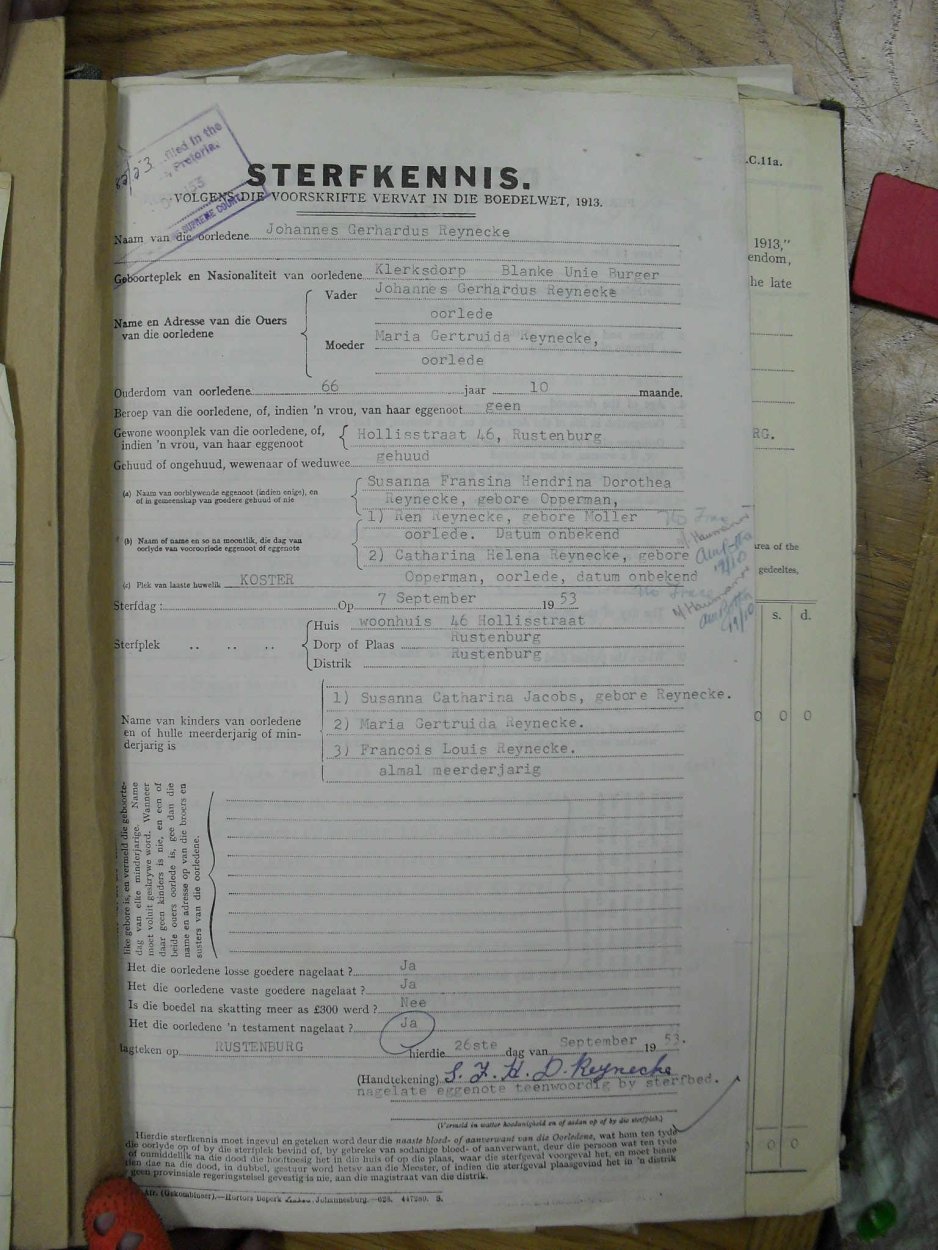 filed in the
Pretoria.
SUPREME COURT
STERFKENNIS.
VOLGENS DIE VOORSKRIFTE VERVAT IN DIE BOEDELWET, 1913.
Naam van die oorledene Johannes Gerhardus Reynecke
Geboorteplek en Nasionaliteit van oorledene Klerksdorp Blanke Unie Burger
Name en Adresse van die Ouers van die oorledene
Vader Johannes Gerhardus Reynecke
oorlede
Moeder Maria Gertruida Reynecke,
oorlede
Ouderdom van oorledene 66 jaar 10 maande.
Beroep van die oorledene, of, indien 'n vrou, van haar eggenoot geen
Gewone woonplek van die oorledene, of, indien 'n vrou, van haar eggenoot Hollisstraat 46, Rustenburg
Gehuud of ongehuud, wewenaar of weduwee gehuud
(a) Naam van oorblywende eggenoot (indien enige), en of in gemeenskap van goedere gehuud of nie
Susanna Fransina Hendrina Dorothea
Reynecke, gebore Opperman,
(b) Naam of name en so na moontlik, die dag van oorlyde van vooroorlede eggenoot of eggenote
1) Ren Reynecke, gebore Moller
oorlede. Datum onbekend
2) Catharina Helena Reynecke, gebore
Opperman, oorlede, datum onbekend
No Trace
19/10
No Trace
19/10
(c) Plek van laaste huwelik KOSTER
Sterfdag : Op 7 September 1953
Sterfplek .. .. ..
Huis woonhuis 46 Hollisstraat
Dorp of Plaas Rustenburg
Distrik Rustenburg
Name van kinders van oorledene en of hulle meerderjarig of minderjarig is
1) Susanna Catharina Jacobs, gebore Reynecke.
2) Maria Gertruida Reynecke.
3) Francois Louis Reynecke.
almal meerderjarig
like gebore is, en vermeld die geboorte-
dag van elke minderjarige. Name
moet voluit geskrywe word. Wanneer
daar geen kinders is nie, en een of
beide ouers oorlede is, gee dan die
name en adresse op van die broers en
susters van die oorledene.
Het die oorledene losse goedere nagelaat ? Ja
Het die oorledene vaste goedere nagelaat ? Ja
Is die boedel na skatting meer as £300 werd ? Nee
Het die oorledene 'n testament nagelaat ? Ja
tagteken op RUSTENBURG hierdie 26ste dag van September 1953.
(Handtekening) S. F. H. D. Reynecke
nagelate eggenote teenwoordig by sterfbed.
(Vermeld in watter hoedanigheid en of aedan op of by die sterfplek.)
Hierdie sterfkennis moet ingevul en geteken word deur die naaste bloed- of aanverwant van die Oorledene, wat hom ten tyde
die oorlyde op of by die sterfplek bevind of, by gebreke van sodanige bloed- of aanverwant, deur die persoon wat ten tyde
of onmiddellik na die dood die hooftoesig het in die huis of op die plaas, waar die sterfgeval voorgeval het, en moet binne
tien dae na die dood, in dubbel, gestuur word hetsy aan die Meester, of indien die sterfgeval plaasgevind het in 'n distrik
geen provinsiale regeringstelsel gevestig is nie, aan die magistraat van die distrik.
Afr. (Gekombineer).—Hortors Beperk Johannesburg.—628. 447280. S.
.C.11a.
1913,"
endom,
he late
RG.
area of the
gedeeltes,
s. d.
0 0 0
0 0